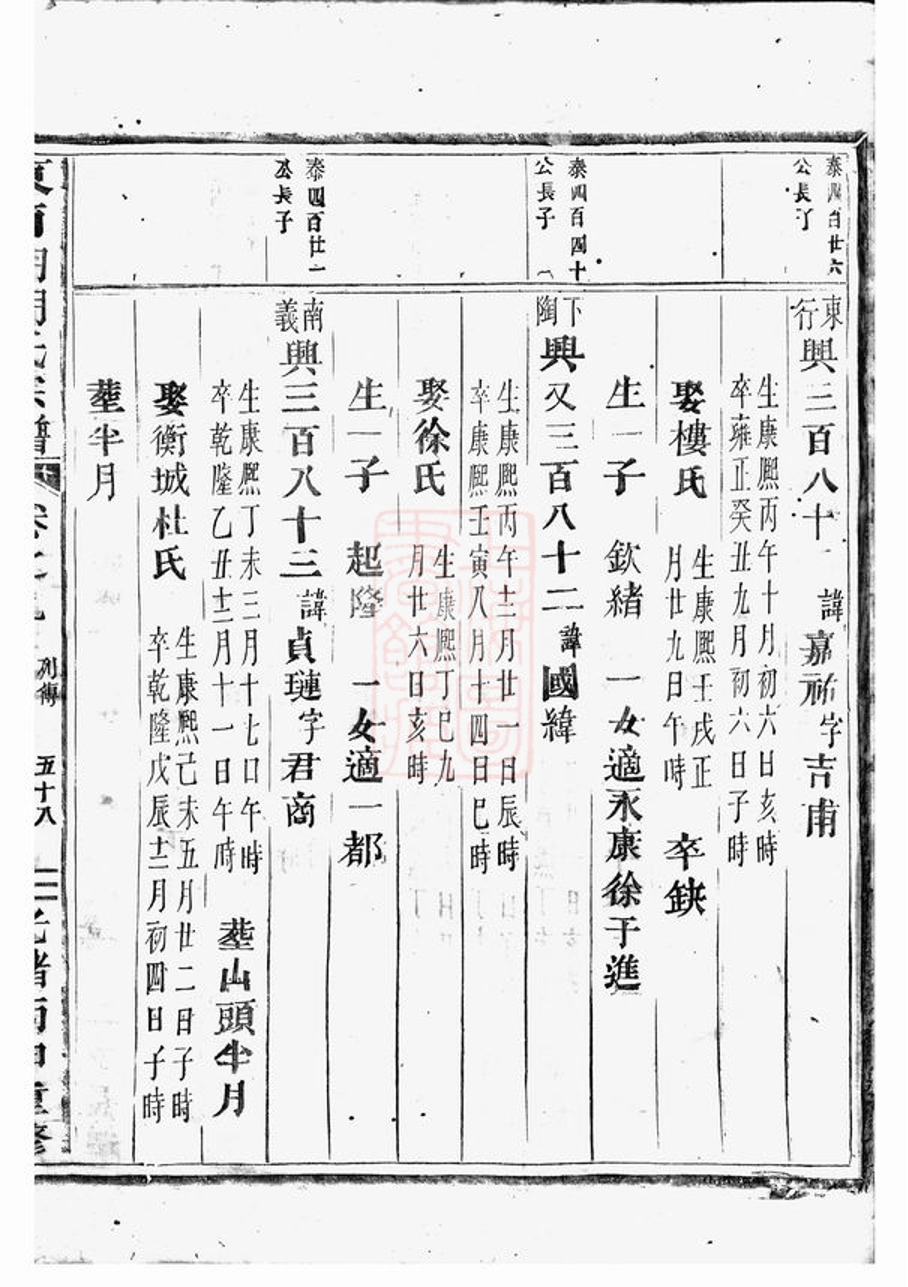 泰四百廿六
公長子
東行興三百八十一 諱嘉祐字吉甫
生康熙丙午十月初六日亥時
卒雍正癸丑九月初六日子時
娶樓氏 生康熙壬戌正月廿九日午時 卒缺
生一子 欽緒 一女適永康徐于進
泰四百四十一
公長子
下陶興又三百八十二諱國緯
生康熙丙午十二月廿一日辰時
卒康熙壬寅八月十四日巳時
娶徐氏 生康熙丁巳九月廿六日亥時
生一子 起隆 一女適一都
泰四百廿一
公長子
南義興三百八十三諱貞璉字君商
生康熙丁未三月十七日午時
卒乾隆乙丑十二月十一日午時 塟山頭半月
娶衡城杜氏 生康熙己未五月廿二日子時
卒乾隆戊辰十二月初四日子時
塟半月
氏宗譜 卷之 列傳 五十八 光緒丙申重修